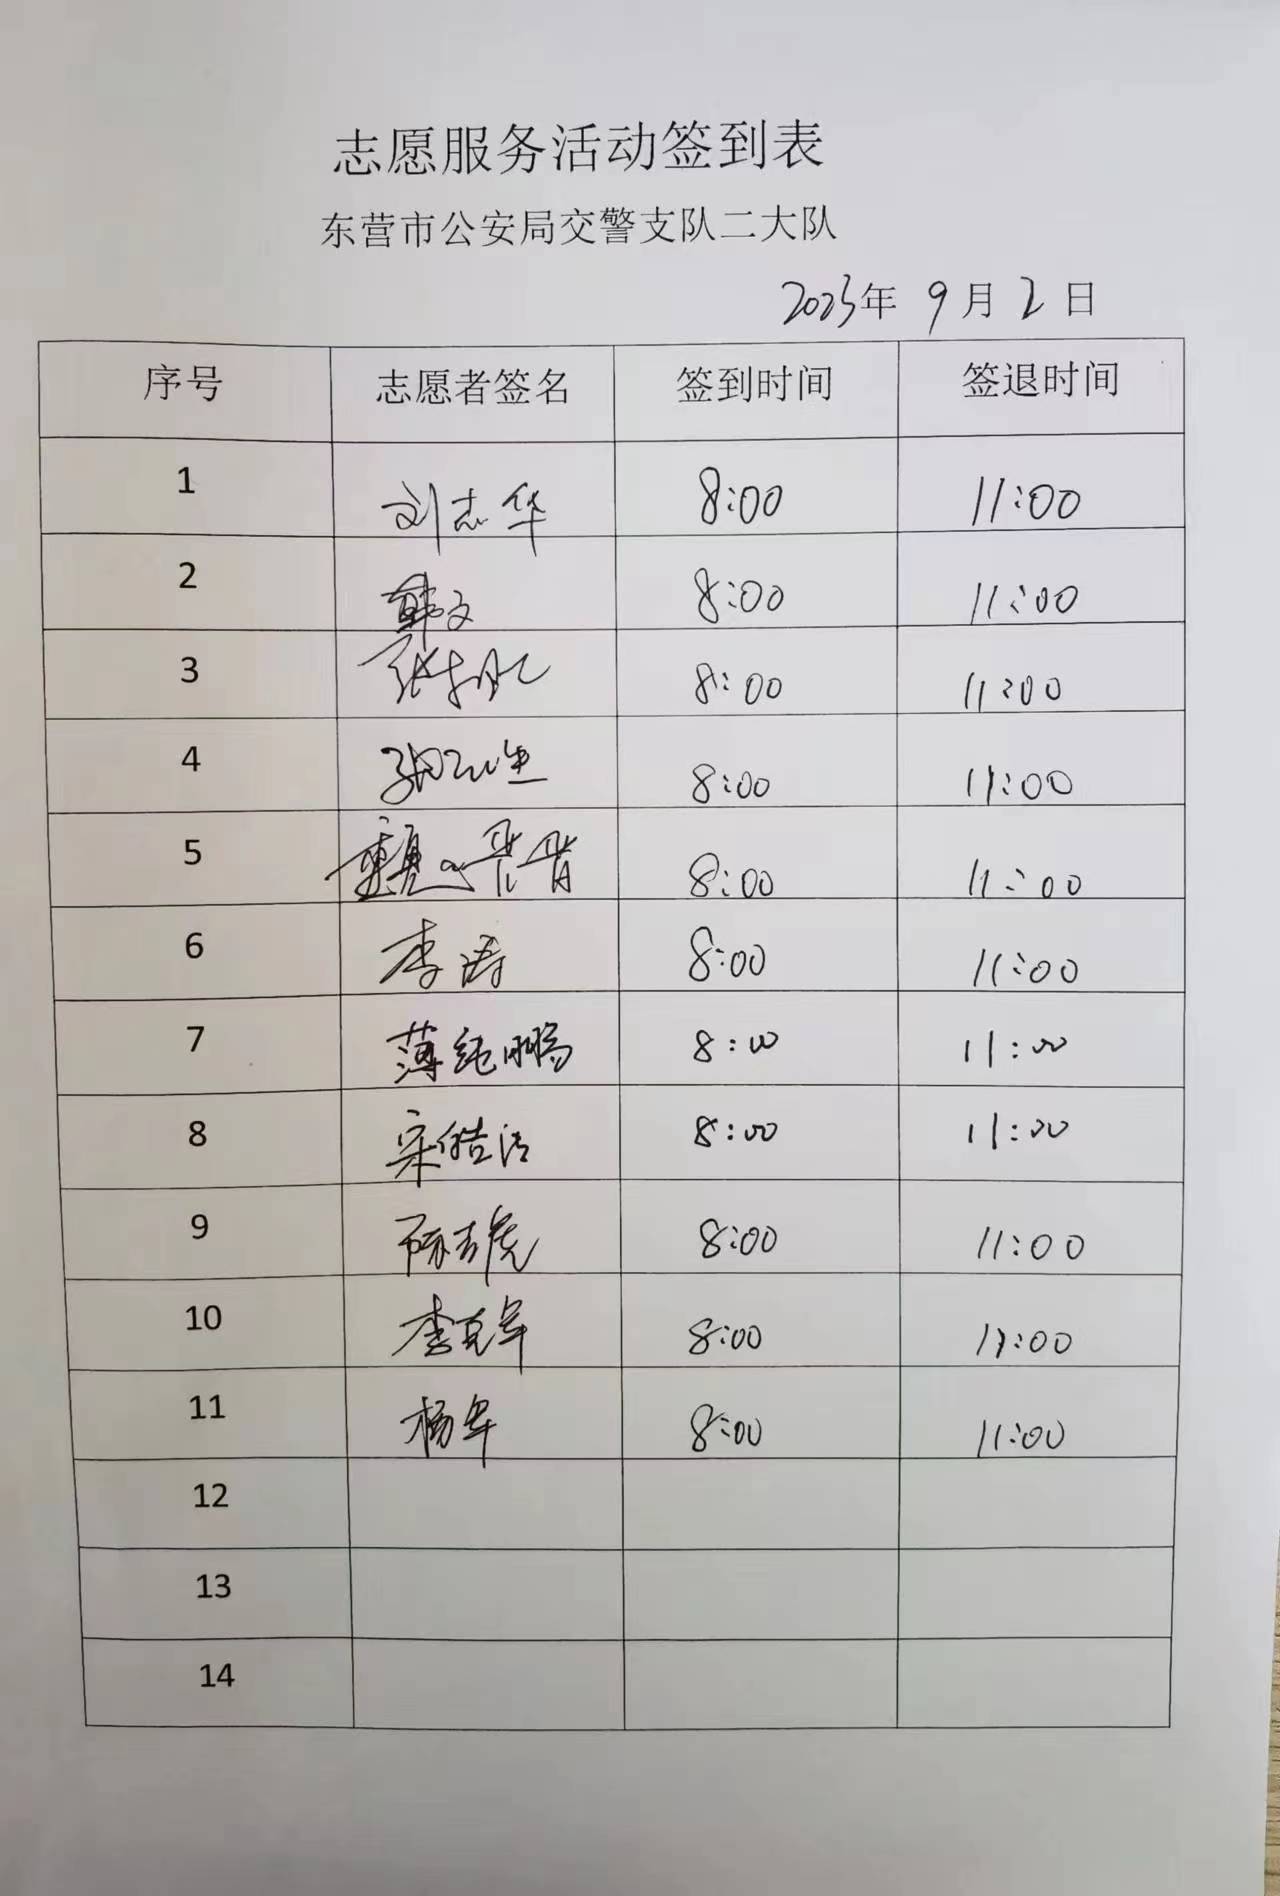 志愿服务活动签到表
东营市公安局交警支队二大队
2023年 9月2日
序号 志愿者签名 签到时间 签退时间
1 刘志华 8:00 11:00
2 韩文 8:00 11:00
3 8:00 11:00
4 8:00 11:00
5 8:00 11:00
6 李涛 8:00 11:00
7 薄纯鹏 8:00 11:00
8 宋皓洁 8:00 11:00
9 陈吉虎 8:00 11:00
10 李克军 8:00 11:00
11 杨军 8:00 11:00
12
13
14